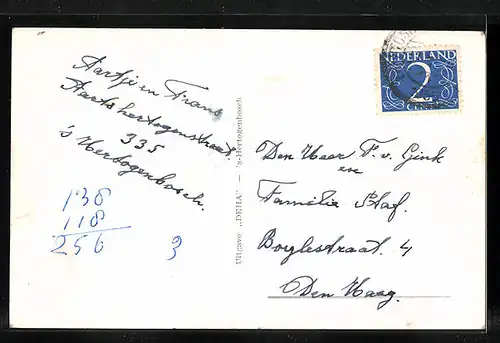 Aartje en Frans
Aartshertogenstraat
335
's Hertogenbosch.
138
118
256
3
Uitgave „DEHA” — 's-Hertogenbosch
NEDERLAND
2
CENT
Den Heer F. v. Gink
en
Familie Staf.
Boylestraat. 4
Den Haag.